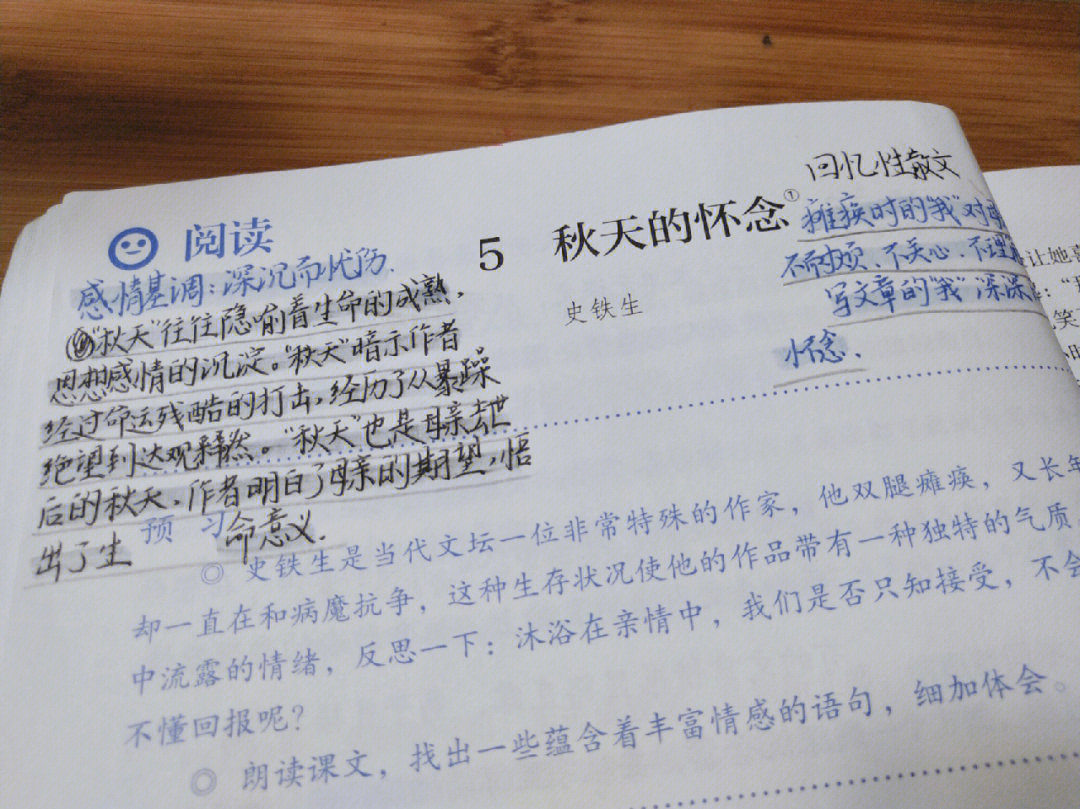 回忆性散文
阅读
5 秋天的怀念①
瘫痪时的"我"对母
不耐烦、不关心、不理
写文章的"我"深深
怀念.
史铁生
感情基调:深沉而忧伤.
"秋天"往往隐喻着生命的成熟,
思想感情的沉淀。"秋天"暗示作者
经过命运残酷的打击,经历了从暴躁
绝望到达观释然。"秋天"也是母亲去世
后的秋天,作者明白了母亲的期望,悟
出了生命意义.
预 习
◎ 史铁生是当代文坛一位非常特殊的作家,他双腿瘫痪,又长年
却一直在和病魔抗争,这种生存状况使他的作品带有一种独特的气质
中流露的情绪,反思一下:沐浴在亲情中,我们是否只知接受,不会
不懂回报呢?
◎ 朗读课文,找出一些蕴含着丰富情感的语句,细加体会。
让她喜
笑